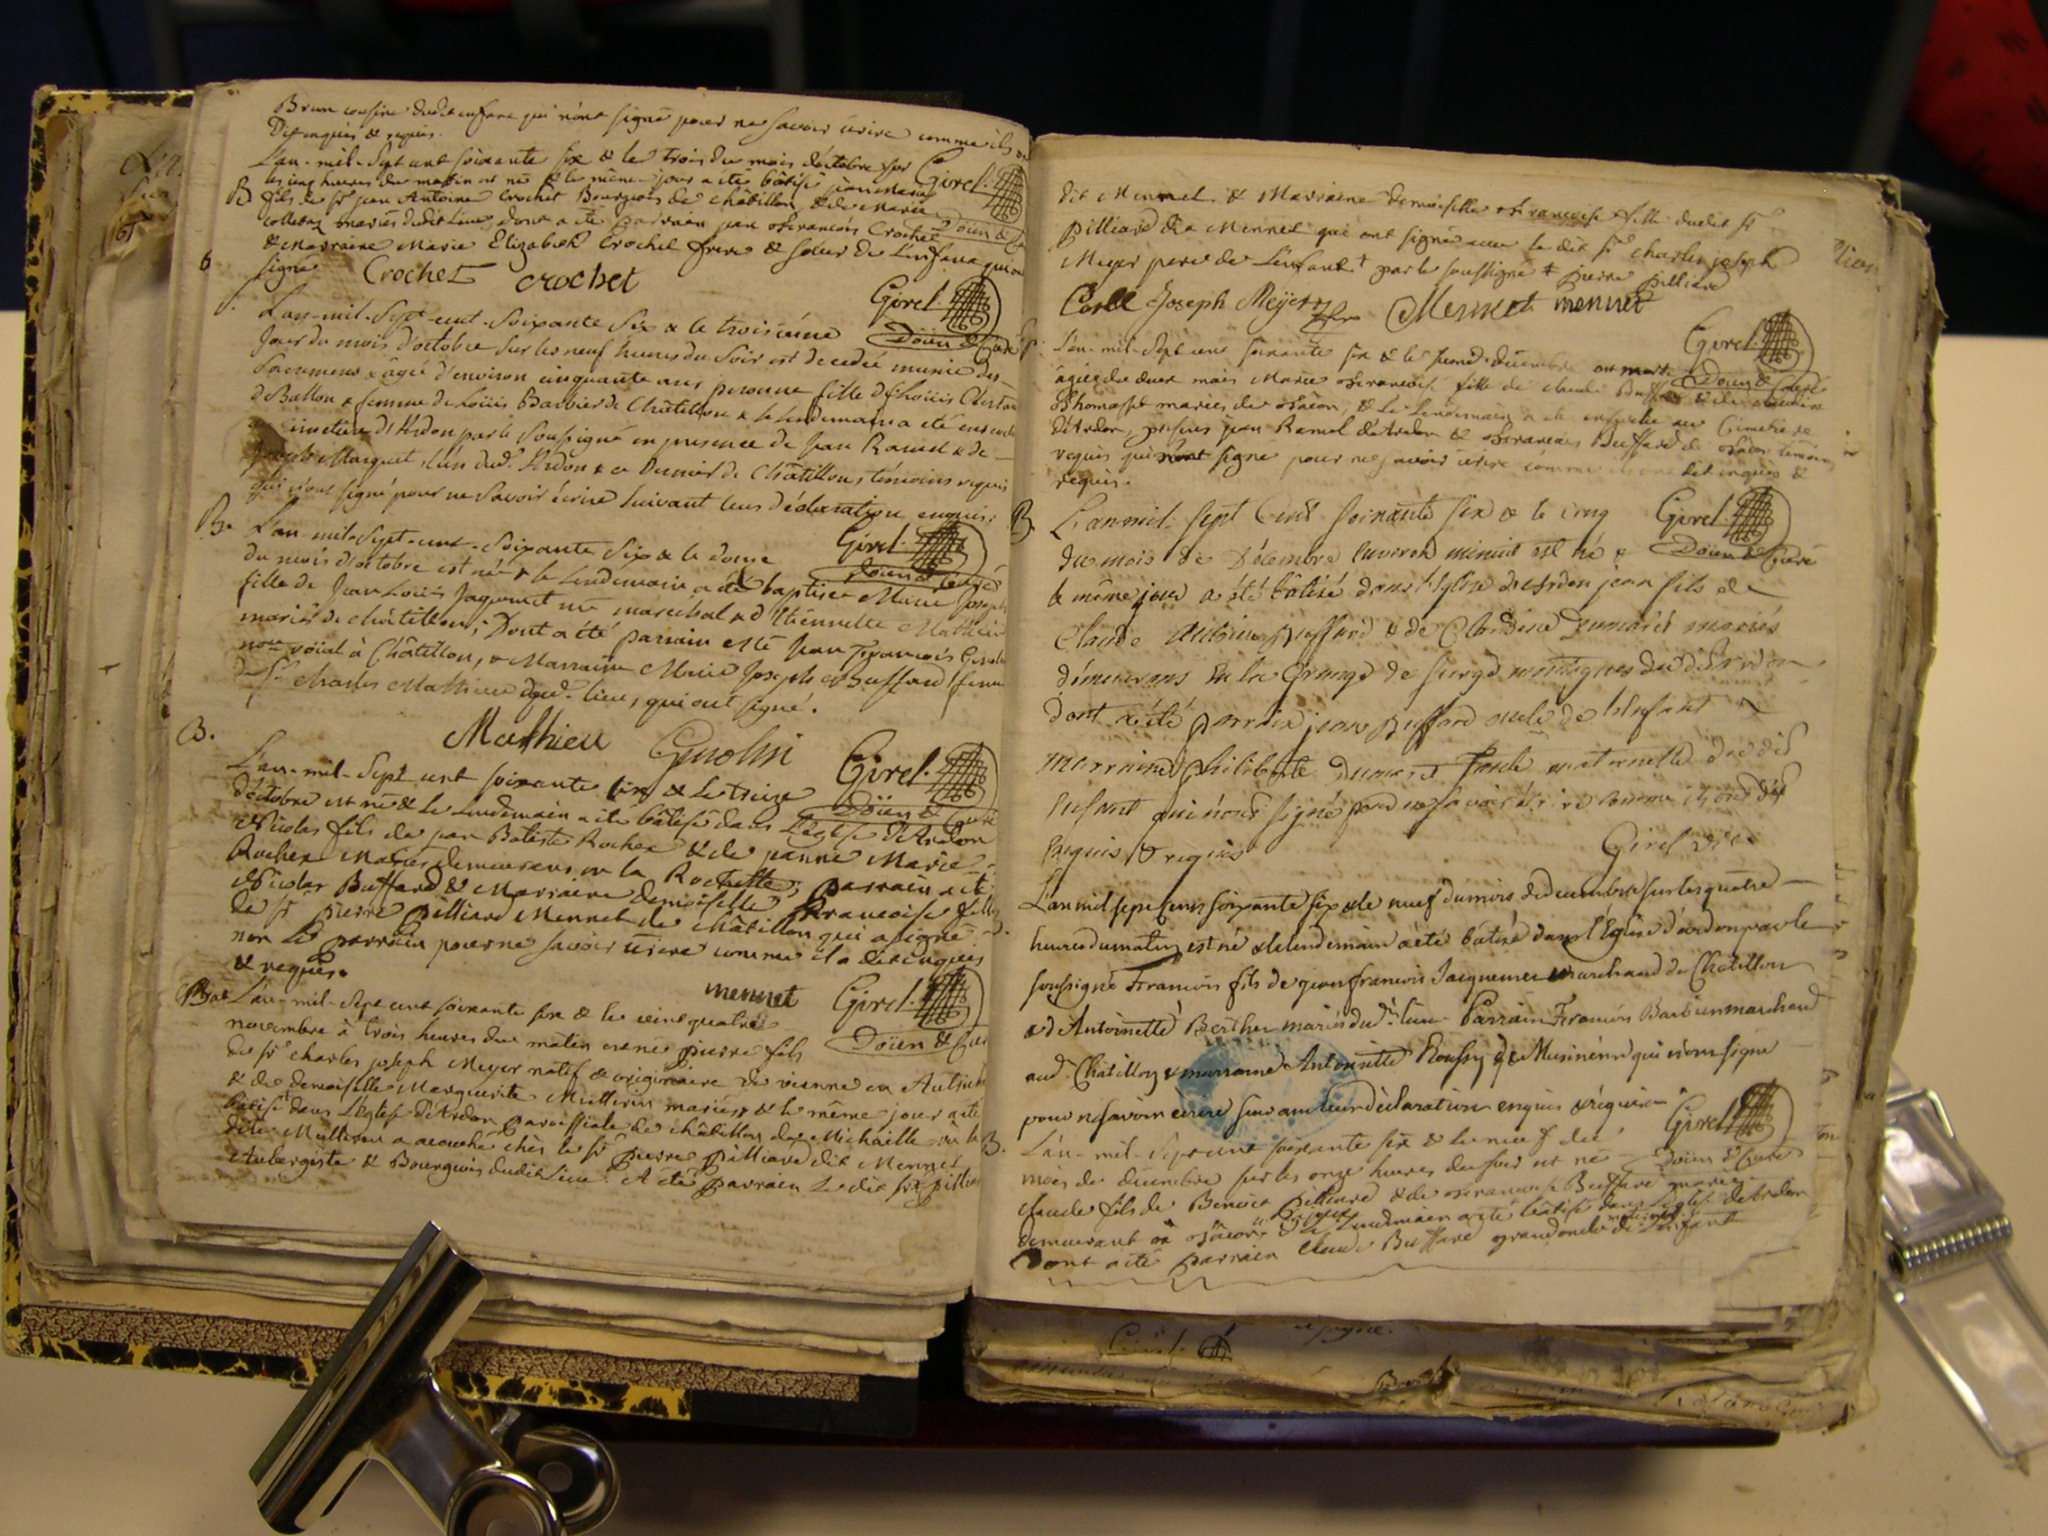 Brun cousine dudit enfant qui n'ont signé pour ne savoir écrire comme ils ont
Dit enquis & requis.
L'an-mil-Sept cent soixante six & le trois du mois d'octobre sur
les cinq heures du matin est né & le même jour a été bâtisé jean Marie
Girel.
B fils de Sr jean Antoine Crochet Bourgeois de Châtillon & de Marie
Colletaz mariés dudit Lieu, dont a été parrain jean François Crochet
Doïen &
& Marraine Marie Elizabeth Crochet frere & soeur de L'enfant qui ont
signé
Crochet crochet
6
S.
L'an-mil-Sept-cent-Soixante Six & le troisième
Girel.
Doïen & Curé
Jour du mois d'octobre Sur les neuf heures du Soir est decedée munie des
Sacremens & âgée d'environ cinquante ans peronne fille de Loüis
de Ballon & femme de Loüis Barbier de Châtillon & le lendemain a été
cimetiere d'Ardon par le Soussigné en presence de Jean Ramel & de
Joseph Marquet, l'un dud. Ardon & ce Dernier de Châtillon, témoins requis
qui n'ont signé pour ne Savoir écrire Suivant leur déclaration enquis.
B.
L'an-mil-Sept-cent-Soixante Six & le douze
Girel.
Doïen & Curé
du mois d'octobre est née & le Lendemain a été baptisée Marie Joseph
fille de Jean Loüis Jaquemet me marechal & d'Etiennette Mathieu
mariés de châtillon; Dont a été parrain Me Jean François
nore roïal à Châtillon, & Marraine Marie Joseph Buffard femme
de Sr Charles Mathieu dud. lieu, qui ont signé.
Mathieu
B.
L'an-mil-Sept cent soixante six & le treize
Girel.
Doïen & Curé
d'octobre est né & le Lendemain a été bâtisé dans L'eglise d'Ardon
Nicolas fils de jean Batiste Rochex & de jeanne Marie
Rochex Mariés demeurans en la Rochette; parrain a été
Nicolas Buffard & Marraine demoiselle Francoise fille
de Sr pierre pilliard Mennet de châtillon qui a signé
non Le parrain pour ne savoir écrire comme il a dit enquis
& requis.
mennet
L'an-mil-Sept cent soixante six & le vint quatre
Girel.
Doïen &
novembre à trois heures du matin est né pierre fils
du Sr charles joseph Meyer natif & originaire de vienne en Autriche
& de demoiselle Marguerite mariés & le même jour a été
bâtisé dans L'eglise d'Ardon Paroissiale de châtillon de Michaille où la
dite a acouché chés le Sr pierre pilliard dit Mennet
Aubergiste & Bourgeois dudit Lieu. A été Parrain Le dit Sr
dit Mennet & Marraine demoiselle Francoise fille dudit Sr
pilliard dit Mennet qui ont signé avec le dit Sr charles joseph
Meyer pere de L'enfant par le soussigné pierre pilliard
Carll Joseph Meÿer Mennet mennet
L'an-mil-Sept cent soixante six & le second décembre est morte
Girel.
Doïen & Curé
agée de deux mois Marie Francoise fille de claude Buffard & de
Thomasset mariés de & le Lendemain a été ensevelie au Cimetiere
d'Ardon, présens jean Ramel d'Ardon & Francois Buffard de témoins
requis qui n'ont signé pour ne savoir écrire comme ils ont dit enquis &
requis.
B
L'an mil sept Cent soixante six & le cinq
Girel.
Doïen & Curé
du mois de Décembre environ minuit est né &
le même jour a été bâtisé dans l'Eglise d'Ardon jean fils de
Claude Antoine Buffard & de Claudine Dumarest mariés
démeurans en la Grange de montagnes dudit Ardon
dont a été parrain jean Buffard oncle de l'enfant &
marraine philiberte Dumarest Tante maternelle du dit
Enfant qui n'ont signé pour ne savoir écrire comme ils ont dit
Enquis & requis
Girel vic.
L'an mil sept cens soixante six & le neuf du mois de decembre sur les quatre
heures du matin est né & le lendemain a été batisé dans l'Eglise d'ardon par le
soussigné Francois fils de jean francois Jacquemet marchand de Chatillon
& d'Antoinette Berther mariés dud. lieu Parrain Francois Barbier marchand
aud. Châtillon & marraine Antoinette Roussy de Musinens qui n'ont signé
pour ne savoir ecrire suivant leur déclaration enquis & requis
B.
L'an-mil-Sept cent soixante six & le neuf du
Girel.
Doïen & Curé
mois de décembre sur les onze heures du soir est né
claude fils de Benoit pilliard & de Francoise Buffard mariés
demeurant & le Lendemain a été bâtisé dans L'eglise d'Ardon
maternel
Dont a été parrain claude Buffard grand oncle de L'enfant